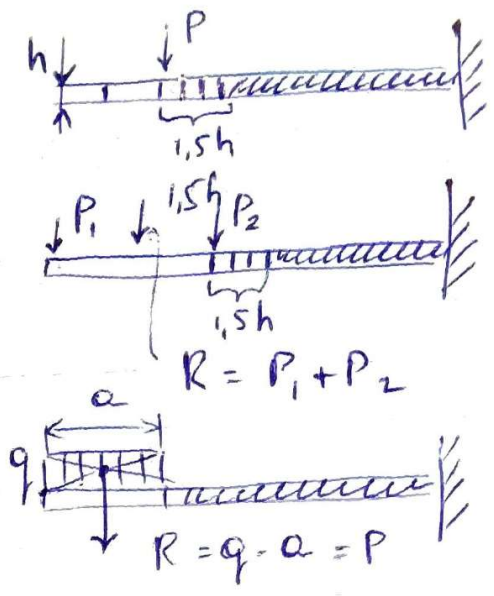 h P
1,5h
P₁ 1,5h P₂
1,5h
R = P₁ + P₂
a
q
R = q · a = P